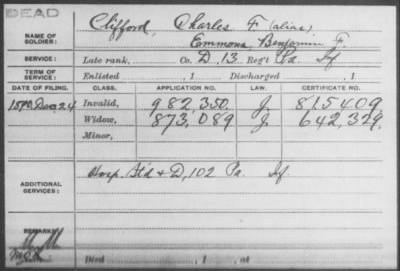 DEAD
Clifford, Charles F (alias)
NAME OF SOLDIER: Emmons, Benjamin F.
SERVICE: Late rank, Co. D, 13 Reg't Pa Inf
TERM OF SERVICE: Enlisted , 1 Discharged , 1
DATE OF FILING. CLASS. APPLICATION NO. LAW. CERTIFICATE NO.
Dec 24 Invalid, 982,350. J. 815409
Widow, 873,089 J 642,329.
Minor,
ADDITIONAL SERVICES: Hosp. Std & D, 102 Pa. Inf.
REMARKS:
Died , 1 , at